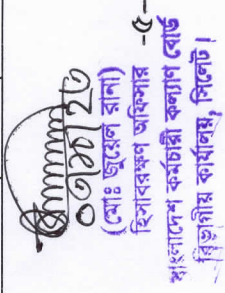 ০৩/১২/২৩
(মোঃ জুয়েল রানা)
হিসাবরক্ষণ অফিসার
বাংলাদেশ কর্মচারী কল্যাণ বোর্ড
বিভাগীয় কার্যালয়, সিলেট।
-৫-